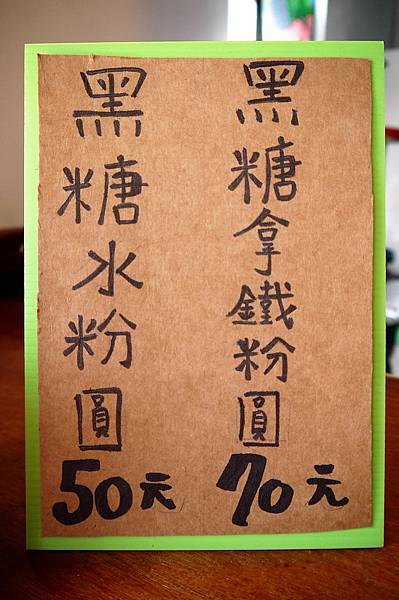 黑糖拿鐵粉圓
70元
黑糖水粉圓
50元